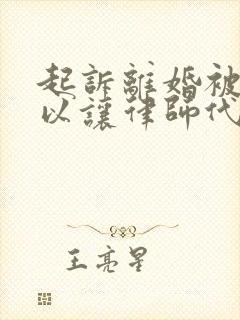 起訴離婚被
以讓律師代
王亮星